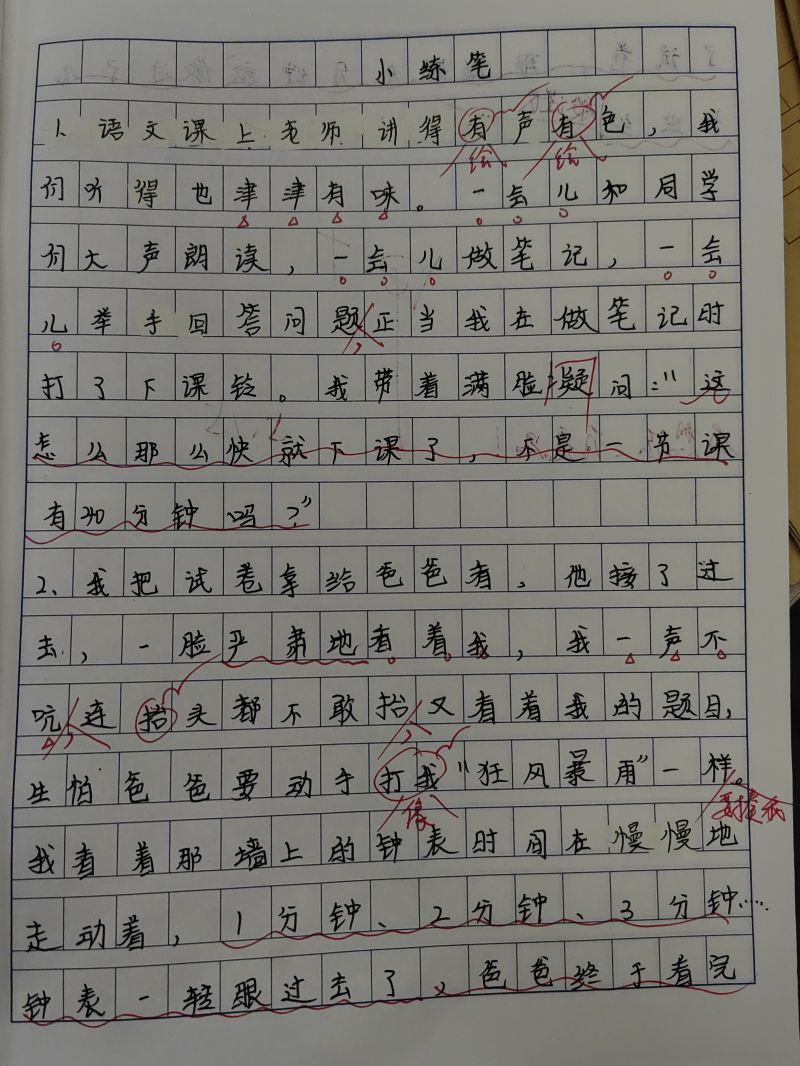 小练笔
1、语文课上老师讲得有声有色，我
绘 绘
们听得也津津有味。一会儿和同学
们大声朗读，一会儿做笔记，一会
儿举手回答问题正当我在做笔记时
，
打了下课铃。我带着满脸疑问："这
怎么那么快就下课了，不是一节课
有30分钟吗？"
2、我把试卷拿给爸爸看，他接了过
去，一脸严肃地看着我，我一声不
吭连抬头都不敢抬又看着我的题目，
， ，
生怕爸爸要动手打我"狂风暴雨"一样。
像
我看着那墙上的钟表时间在慢慢地
走动着，1分钟、2分钟、3分钟……
钟表一轻眼过去了，爸爸终于看完